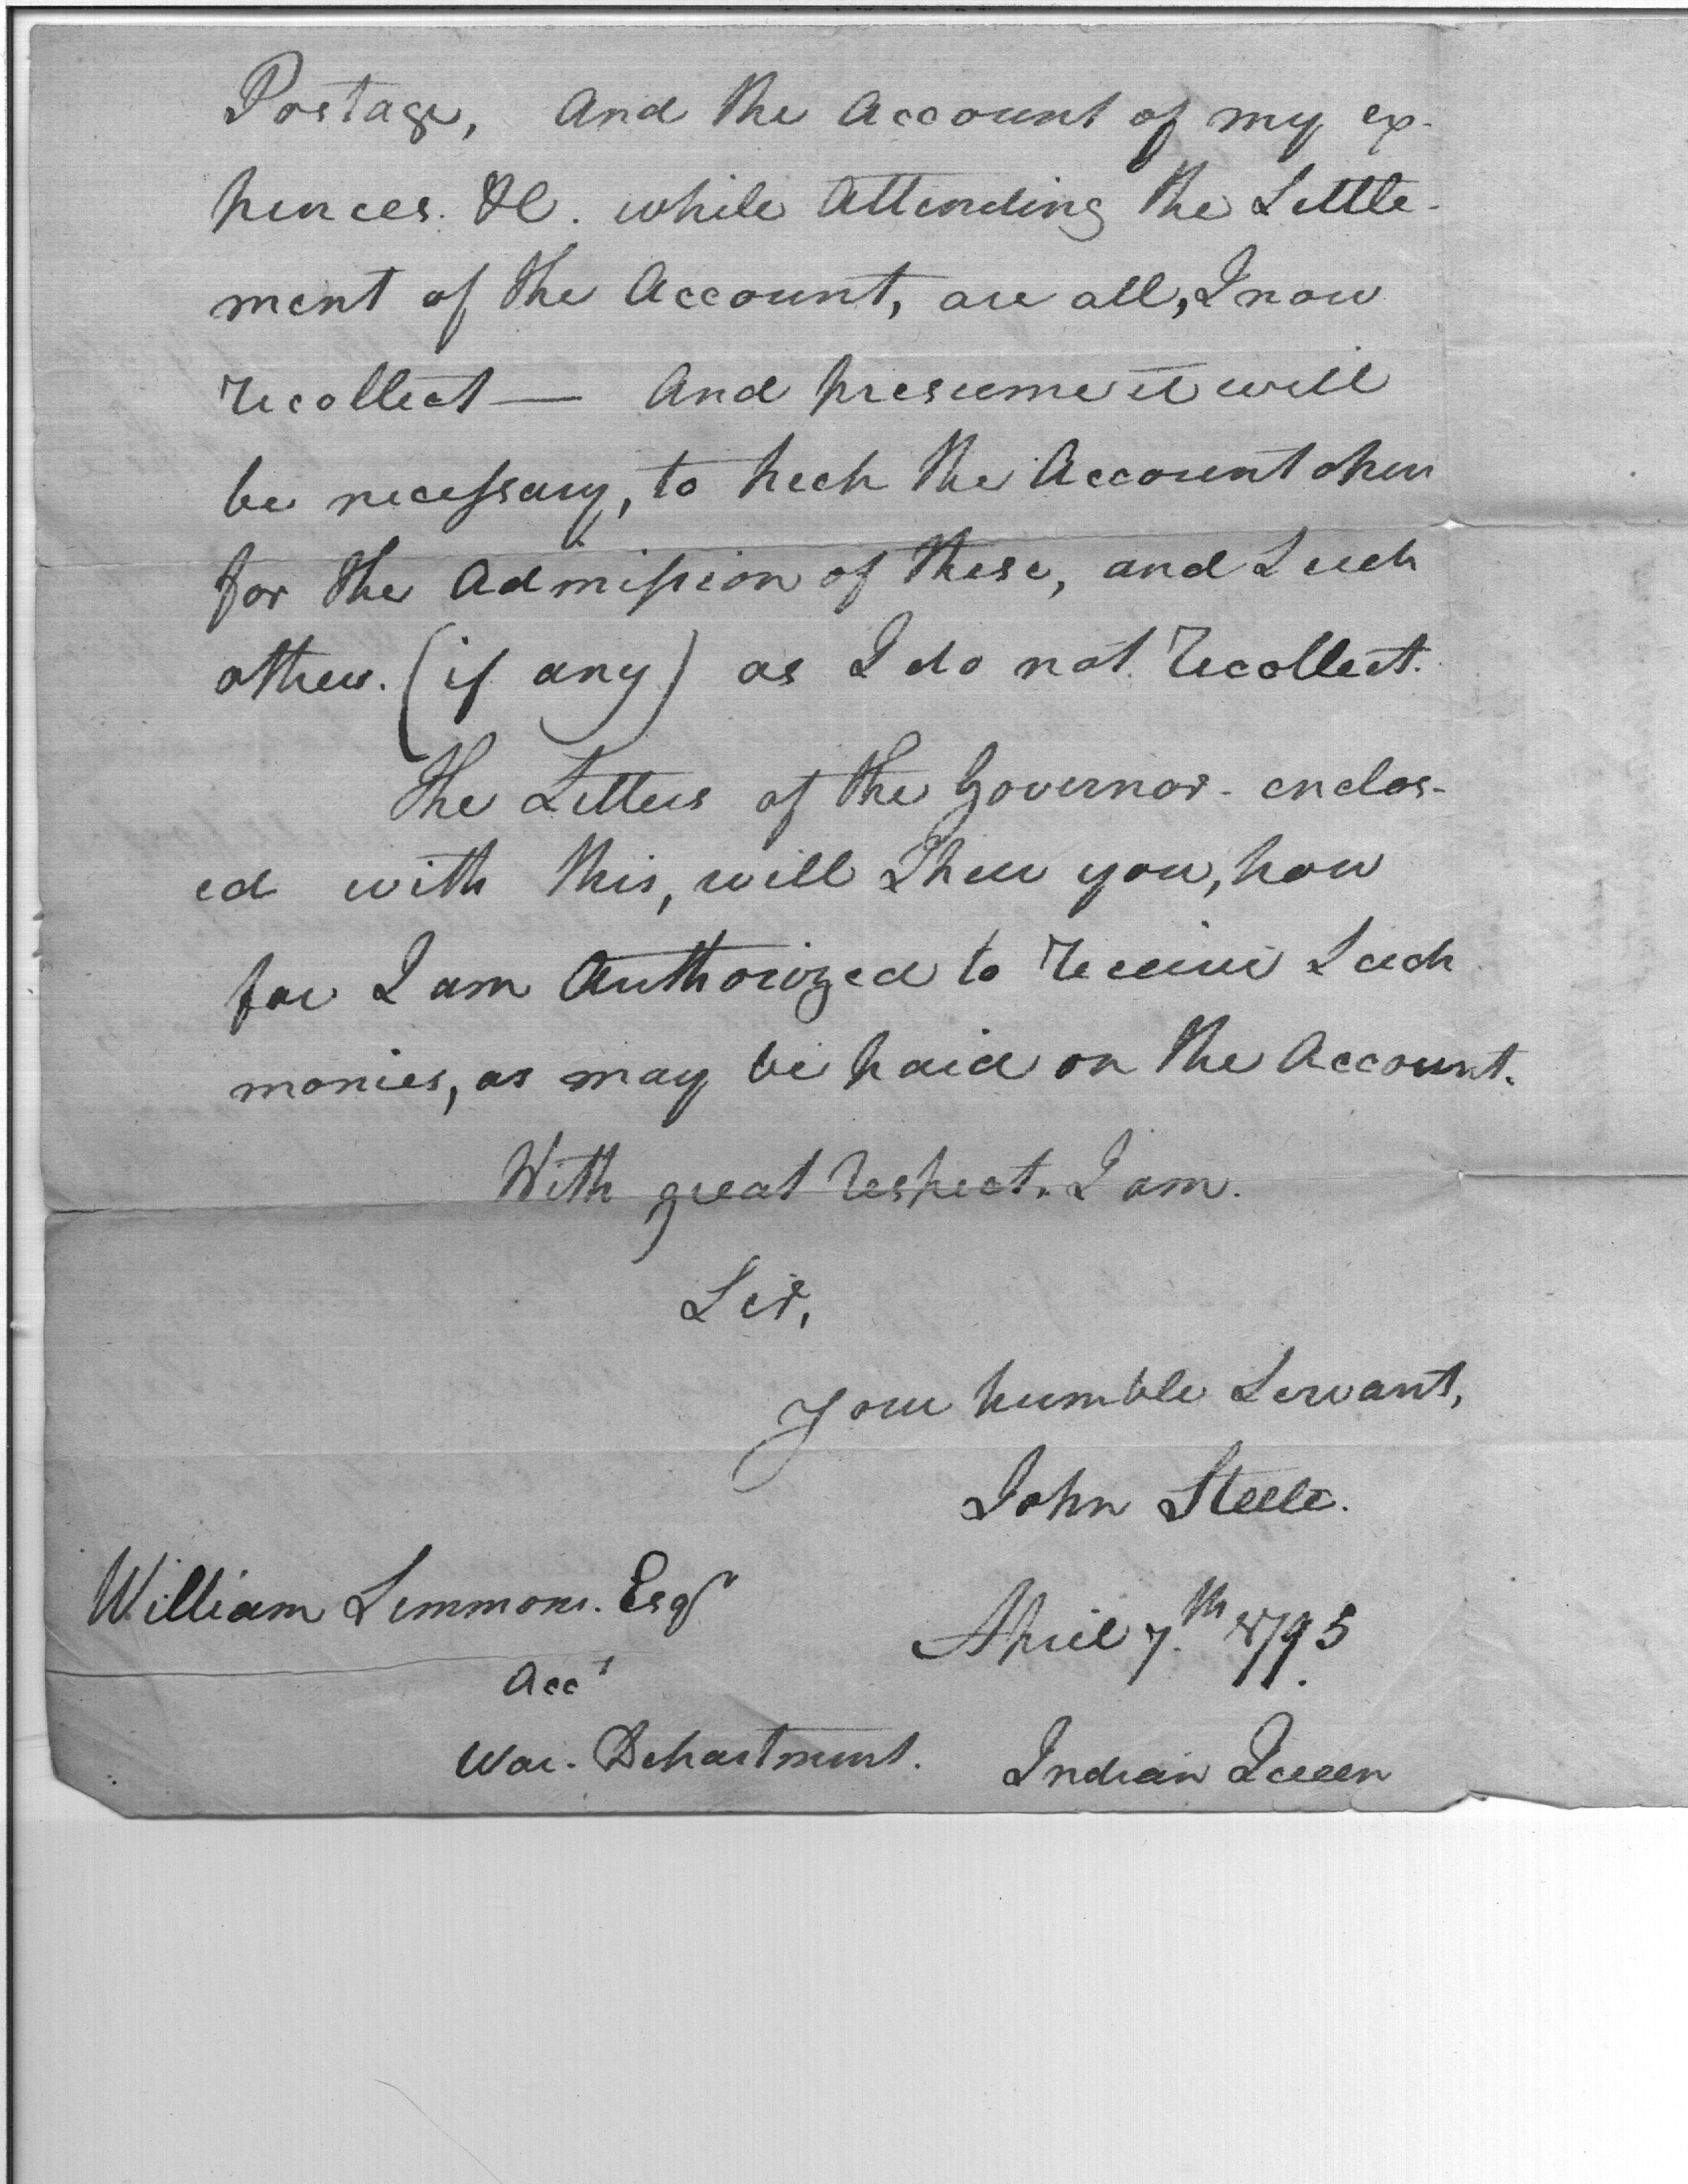 Postage, And the Account of my ex-
pences. &C. while Attending the Settle-
ment of the Account, are all, I now
recollect — And presume it will
be necessary, to keep the Account open
for the Admission of these, and Such
others. (if any) as I do not recollect.
The Letters of the Governor - enclos-
ed with this, will Shew you, how
far I am Authorized to receive Such
monies, as may be paid on the Account.
With great respect. I am.
Sir,
Your humble Servant,
John Steele.
William Simmons. Esqr
April 7.th 1795.
Acct
War. Department.
Indian Queen